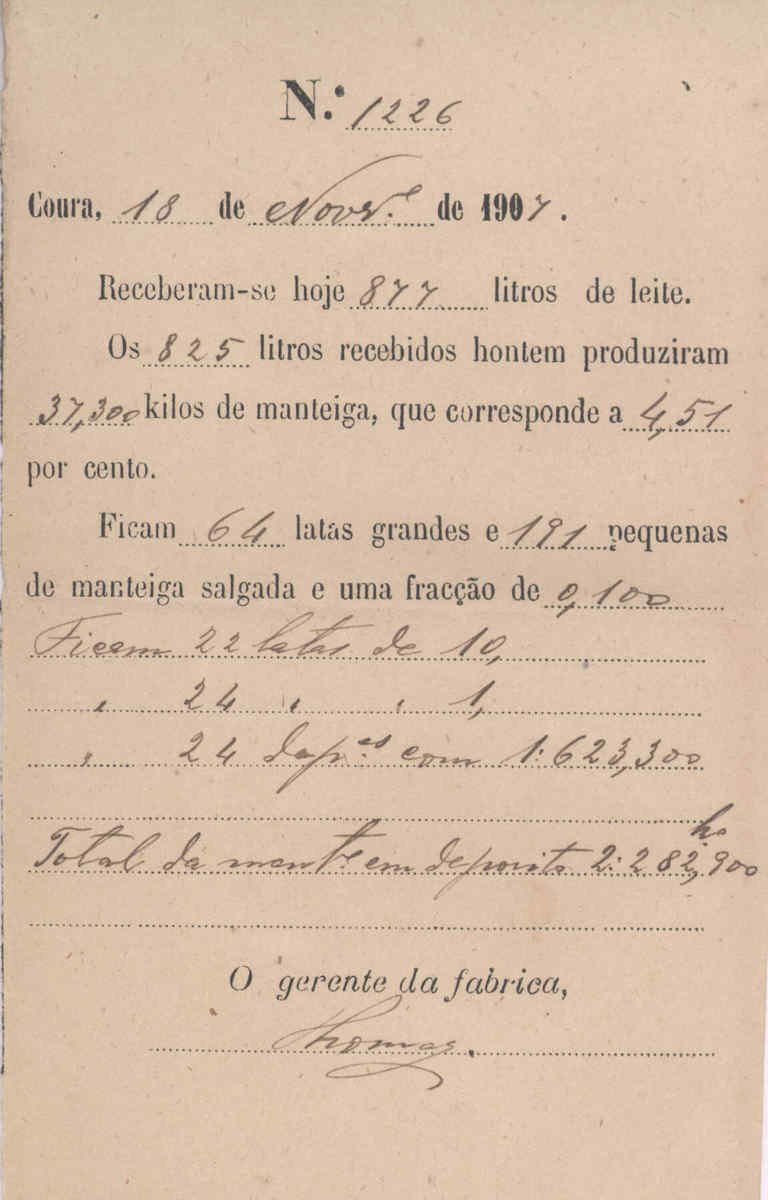 N.º 1226
Coura, 18 de Novr.e de 1907.
Receberam-se hoje 877 litros de leite.
Os 825 litros recebidos hontem produziram
37,300 kilos de manteiga, que corresponde a 4,51
por cento.
Ficam 64 latas grandes e 191 pequenas
de manteiga salgada e uma fracção de 0,100
Ficam 22 latas de 10,
" 24 " " 1,
" 24 dep.es com 1:623,300
Total da mant.e em deposito 2:282,900
O gerente da fabrica,
Thomaz.